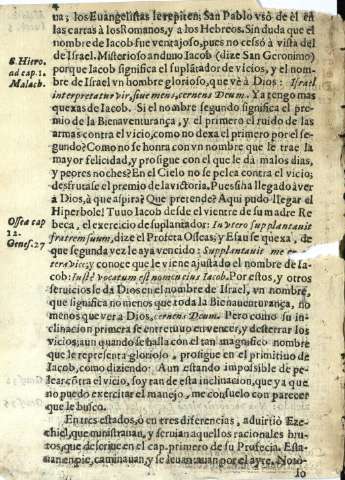 4
ua; los Euangelistas le repiten; San Pablo vsò de èl en
las cartas à los Romanos, y a los Hebreos. Sin duda que el
nombre de Iacob fue ventajoso, pues no cessò à vista del
de Israel. Misterioso anduuo Iacob (dize San Geronimo)
S. Hiero.
ad cap. 1.
Malach.
porque Iacob significa el suplãtador de vicios, y el nom-
bre de Israel vn hombre glorioso, que vè à Dios: Israel
interpretatur vir, siue mens, cernens Deum. Ya tengo mas
quexas de Iacob. Si el nombre segundo significa el pre-
mio de la Bienauenturança, y el primero el ruido de las
armas contra el vicio, como no dexa el primero por el se-
gundo? Como no se honra con vn nombre que le trae la
mayor felicidad, y prosigue con el que le dà malos dias,
y peores noches? En el Cielo no se pelea contra el vicio;
desfrutase el premio de la victoria. Pues si ha llegado à ver
à Dios, à que aspira? Que pretende? Aqui pudo llegar el
Hiperbole! Tuuo Iacob desde el vientre de su madre Re
Ossea cap
12.
Genes. 27
beca, el exercicio de suplantador: In vtero supplantauit
fratrem suum, dize el Profeta Osseas; y Esau se quexa, de
que segunda vez le aya vencido: Supplantauit me en al-
tera vice; y conoce que le viene ajustado el nombre de Ia-
cob: Iustè vocatum est nomen eius Iacob. Por estos, y otros
seruicios le dà Dios en el nombre de Israel, vn nombre,
que significa no menos que toda la Bienauenturança, no
menos que ver a Dios, cernens Deum. Pero como su in-
clinacion primera se entretuuo en vencer, y desterrar los
vicios; aun quando se halla con el tan magnifico nombre
que le representa glorioso, prosigue en el primitiuo de
Iacob, como diziendo: Aun estando impossible de pe-
lear contra el vicio, soy tan de esta inclinacion, que ya que
no puedo exercitar el manejo, me consuelo con parecer
que le busco.
En tres estados, ò en tres diferencias, aduirtiò Eze-
chiel, que ministrauan, y seruian aquellos racionales bru-
tos, que descriue en el cap. primero de su Profecia. Esta-
uan en pie, caminauan, y se leuantauan por el ayre. No so-
lo